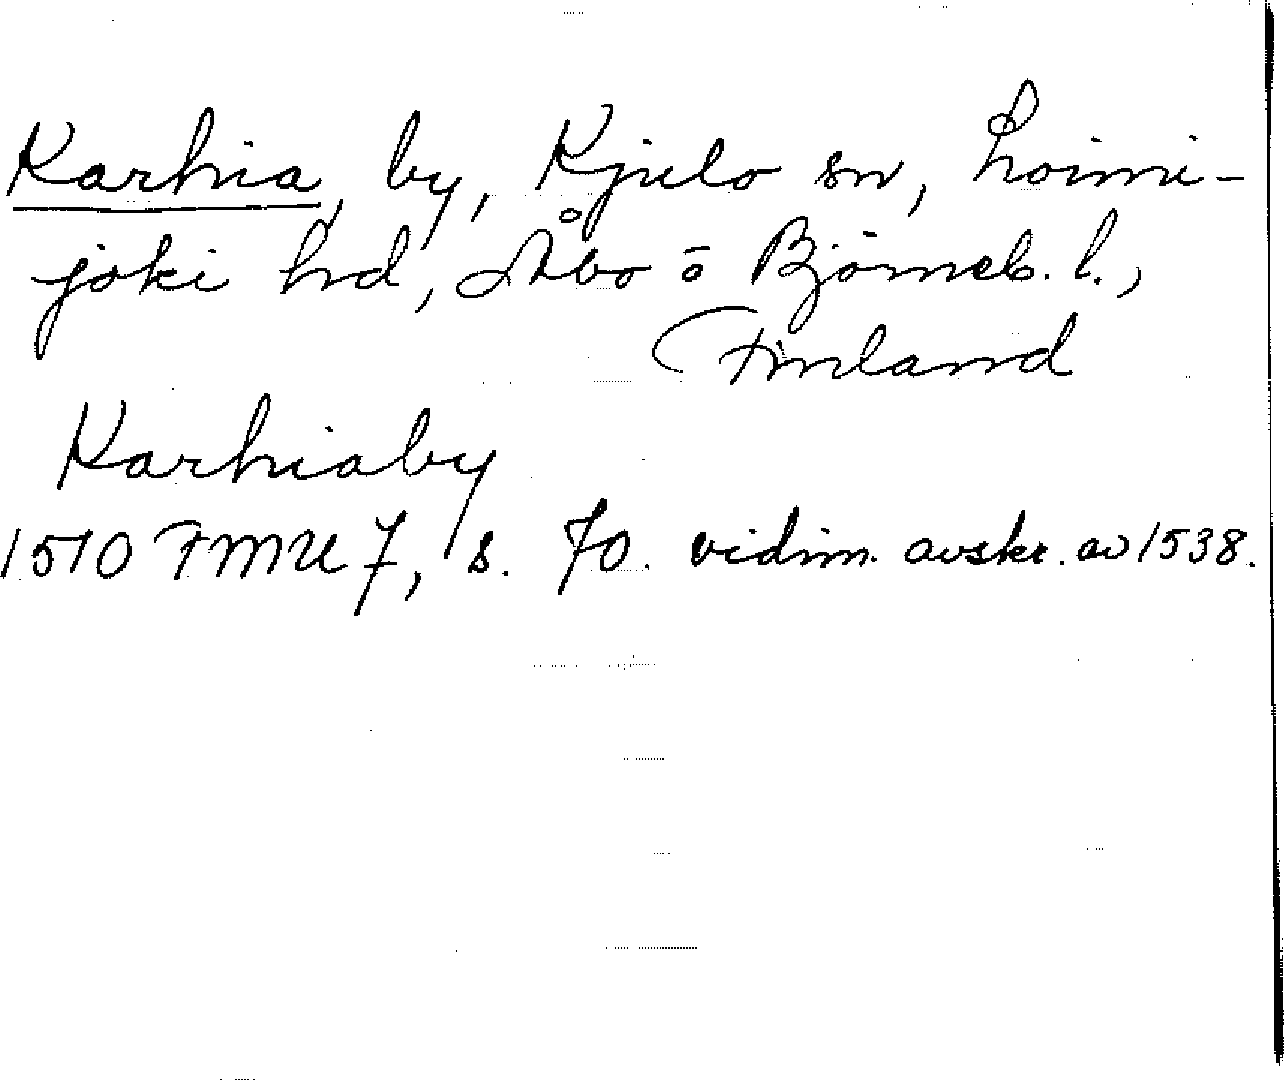 Karhia, by, Kjulo sn, Loimi-
joki hd, Åbo o Björneb. l.,
Finland
Karhiaby
1510 FMU 7, s. 70. vidim. avskr. av 1538.